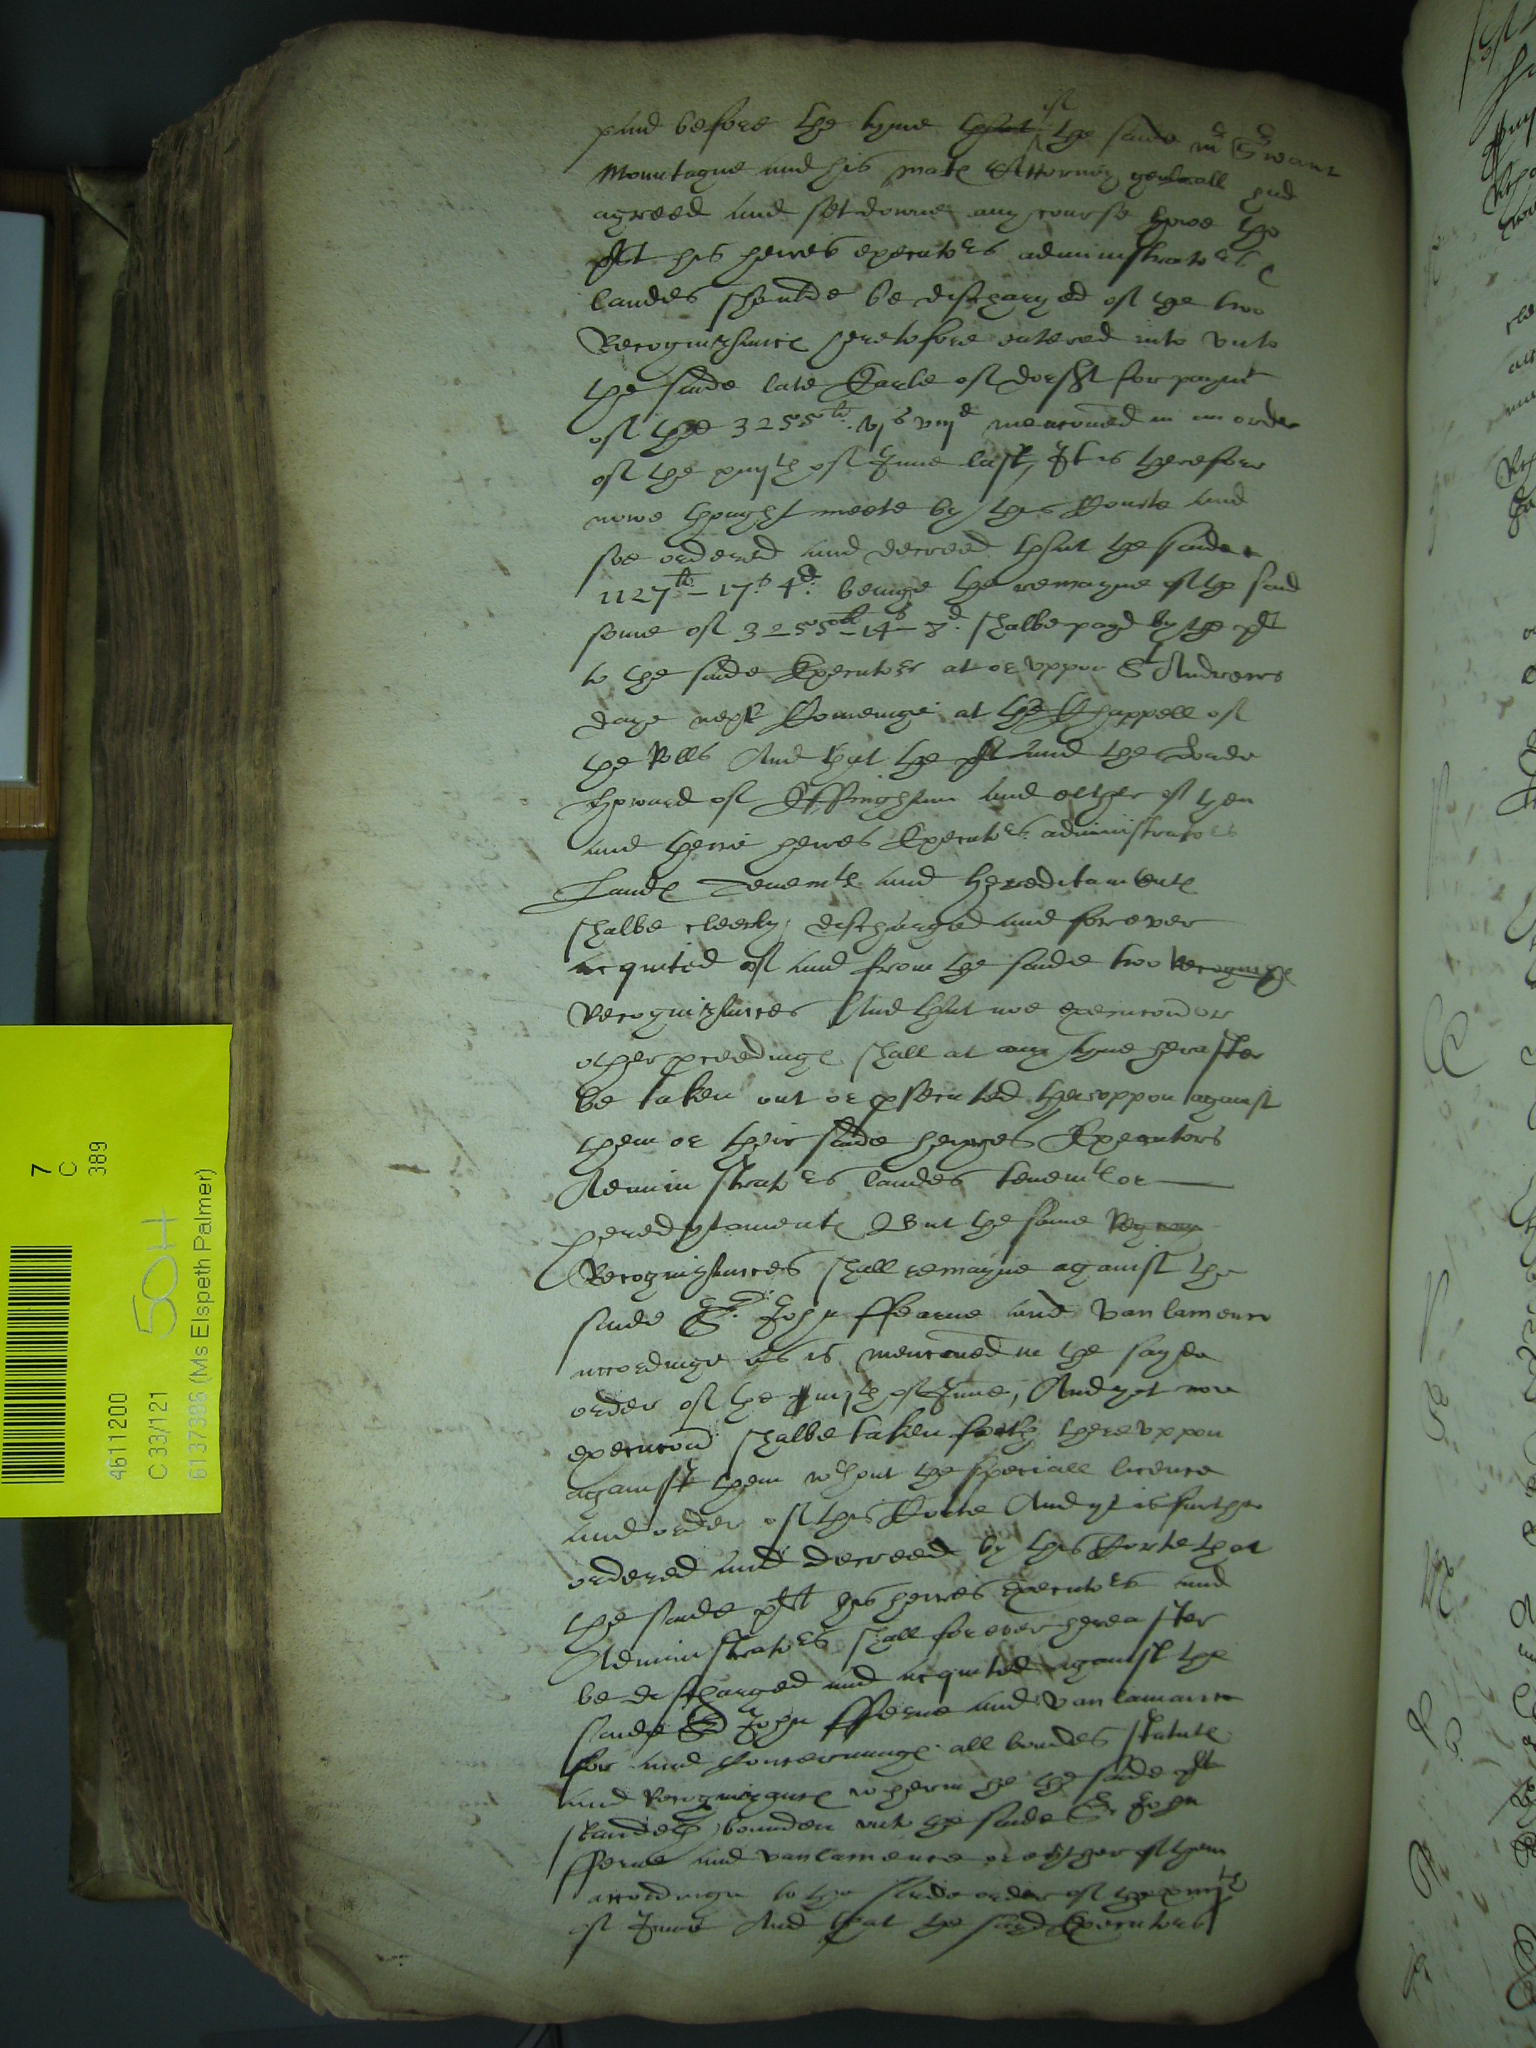 paid before the tyme that if the saide mr Edward
Mountague and his mats Attorney generall had
agreed and set downe any course howe the
plt his heires executors administrators &
landes shoulde be discharged of the two
Recognizance heretofore entered into unto
the saide late Earle of dorset for paymt
of the 3255li. vjs viijd mencioned in an order
of the of June last, It is therefore
nowe thought meete by this Courte and
soe ordered and decreed that the saide
1127li – 17s 4d. beinge the remayne of the said
some of 3255li – 14s – 8d. shalbe payd by the plt
to the saide Executors at or uppon St Andrewes
daye next Comeinge at the Chappell of
the Rolls And that the plt and the Lorde
Howard of Effingham and either of them
and theire heires Executors administrators
Lands Tenemts and hereditaments
shalbe cleerly discharged and for ever
acquited of and from the saide two Recogniz
Recognizances And that noe execucion or
other proceedings shall at any tyme herafter
be taken out or prsecuted theruppon against
them or their saide heyres Executors
Administrators landes tenemts or
heredytaments But the same
Recognizances shall remayne against the
saide Sr. John ffearne and Vanlamence
accordinge as is mencioned in the sayde
order of the of June, And yet noe
execucion shalbe taken forth thereuppon
against them wthout the speciall licence
and order of this Courte And yt is further
ordered and decreed by this Corte that
the saide plt his heires executors and
Administrators shall for ever hereafter
be discharged and acquited against the
saide Sr John fferne and Vanlamance
for and Concerninge all bondes statuts
and Recognizances wherin he the saide plt
standeth bounden unto the saide Sr. John
fferne and Vanlamence or eyther of them
accordinge to the saide order of the
of June And that the sayd Executors
7
C
389
50H
4611200
C 33/121
6137386 (Ms Elspeth Palmer)